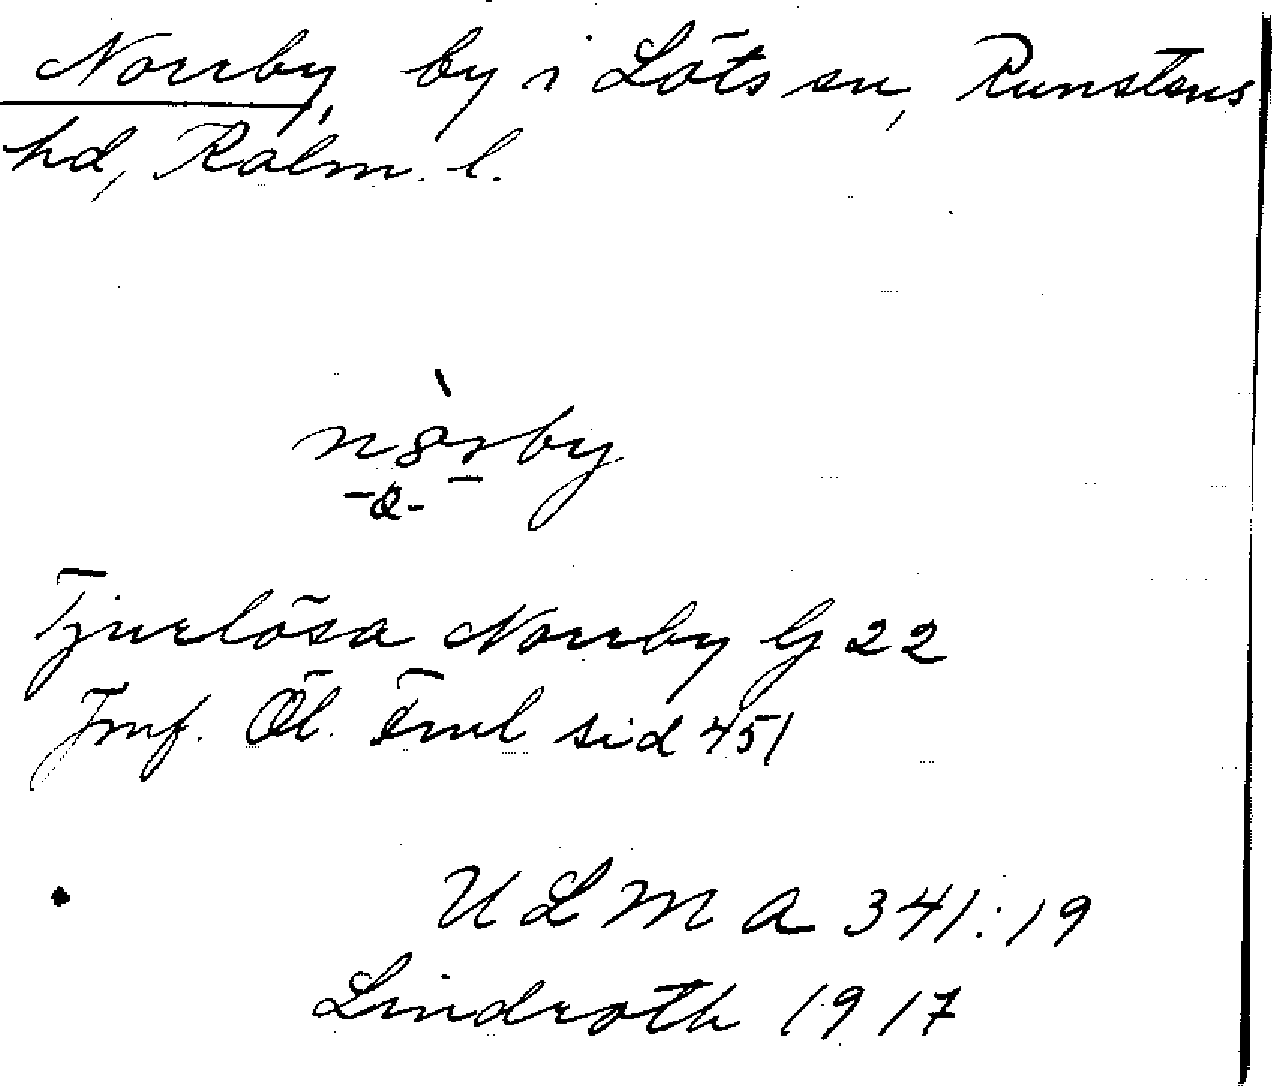 Norrby, by i Löts sn, Runstens
hd, Kalm. l.
nòrby
-a-
Tjurlösa Norrby G 22
Jmf. Öl. Fml sid 451
ULMA 341:19
Lindroth 1917